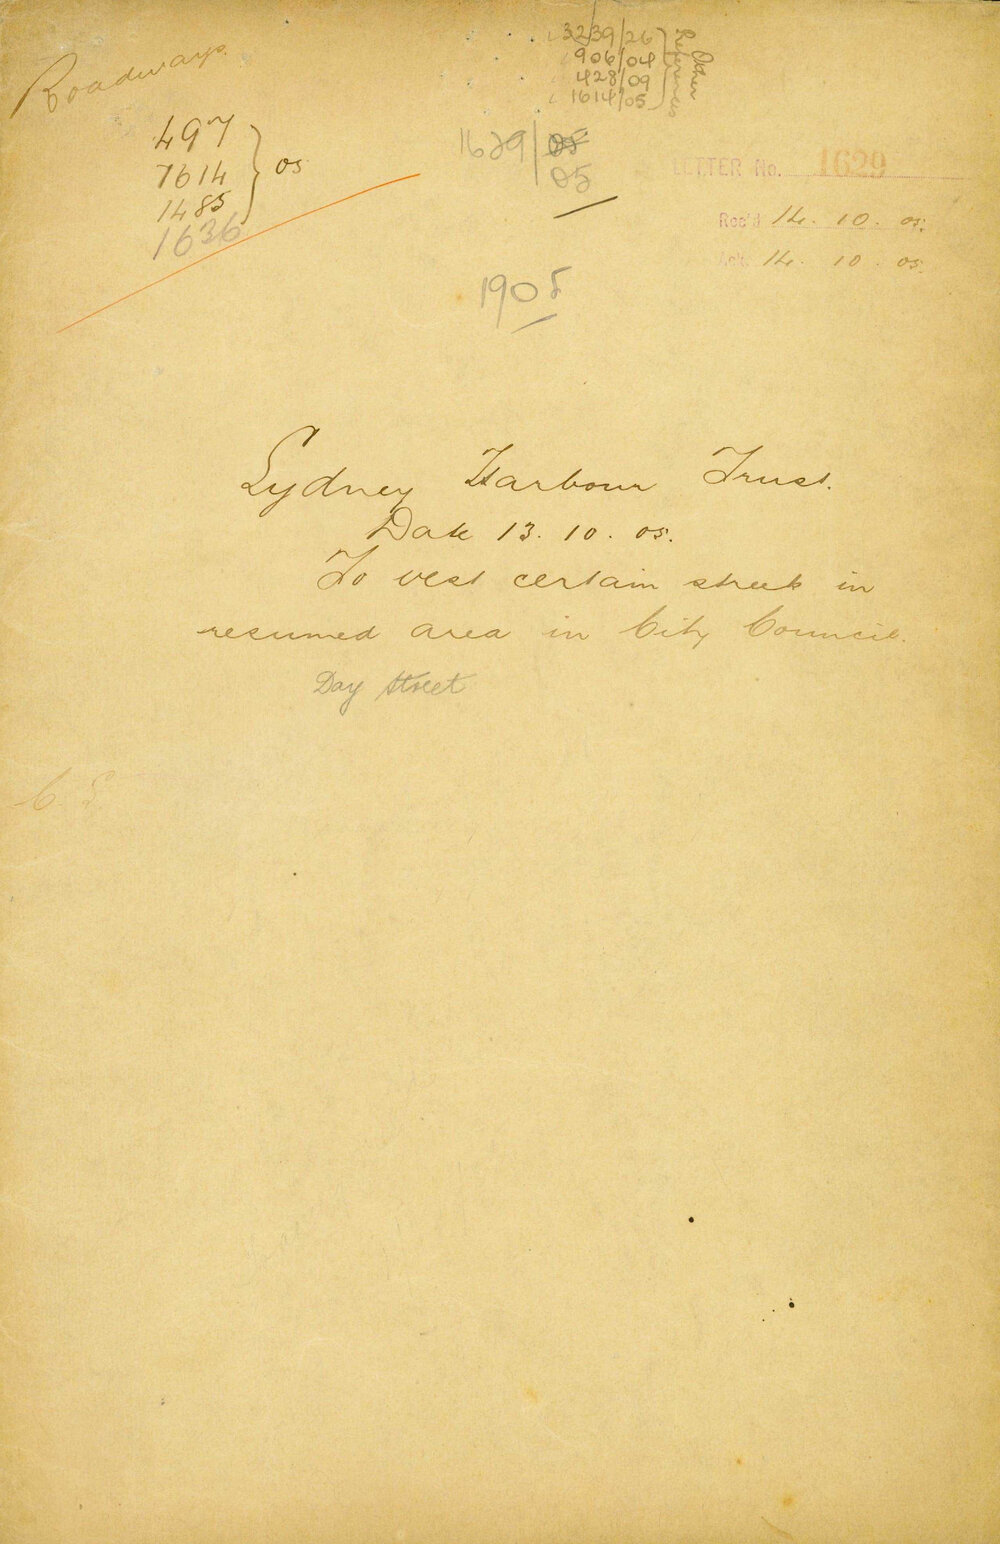 Roadways
497
7614
1485
1636
05
3239/26
906/04
428/09
1614/05
Other
References
1629/05
05
LETTER No. 1629
Rec'd 14. 10. 05.
Ack. 14. 10. 05.
1905
Sydney Harbour Trust.
Date 13. 10. 05.
To vest certain streets in
resumed area in City Council.
Day Street